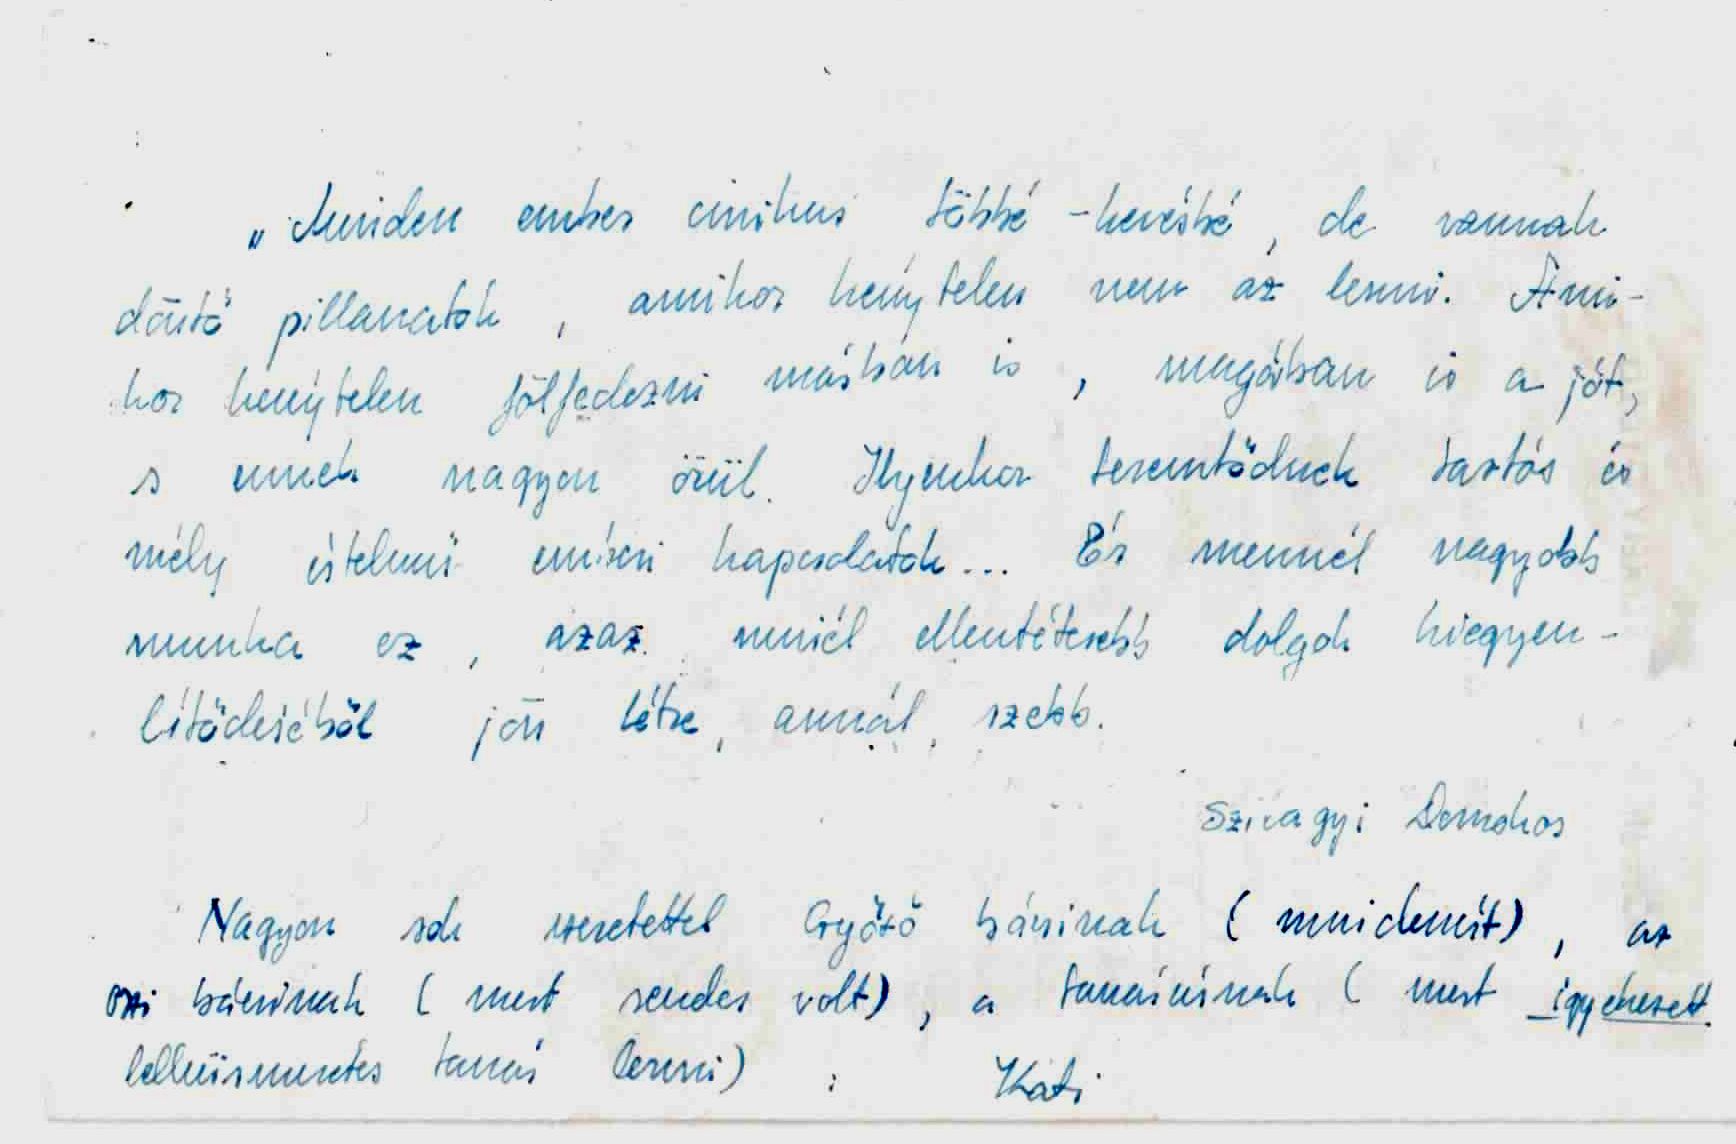 „Minden ember cinikus többé-kevésbé, de vannak
döntő pillanatok, amikor kénytelen nem az lenni. Ami-
kor kénytelen fölfedezni másban is, magában is a jót,
s ennek nagyon örül. Ilyenkor teremtődnek tartós és
mély értelmű emberi kapcsolatok... És mennél nagyobb
munka ez, azaz minél ellentétesebb dolgok kiegyen-
lítődéséből jön létre, annál szebb.
Szilágyi Domokos
Nagyon sok szeretettel Győző bácsinak (mindenért), az
ozi bácsinak (mert rendes volt), a tanárúrnak (mert igyekezett
lelkiismeretes tanár lenni) : Kati